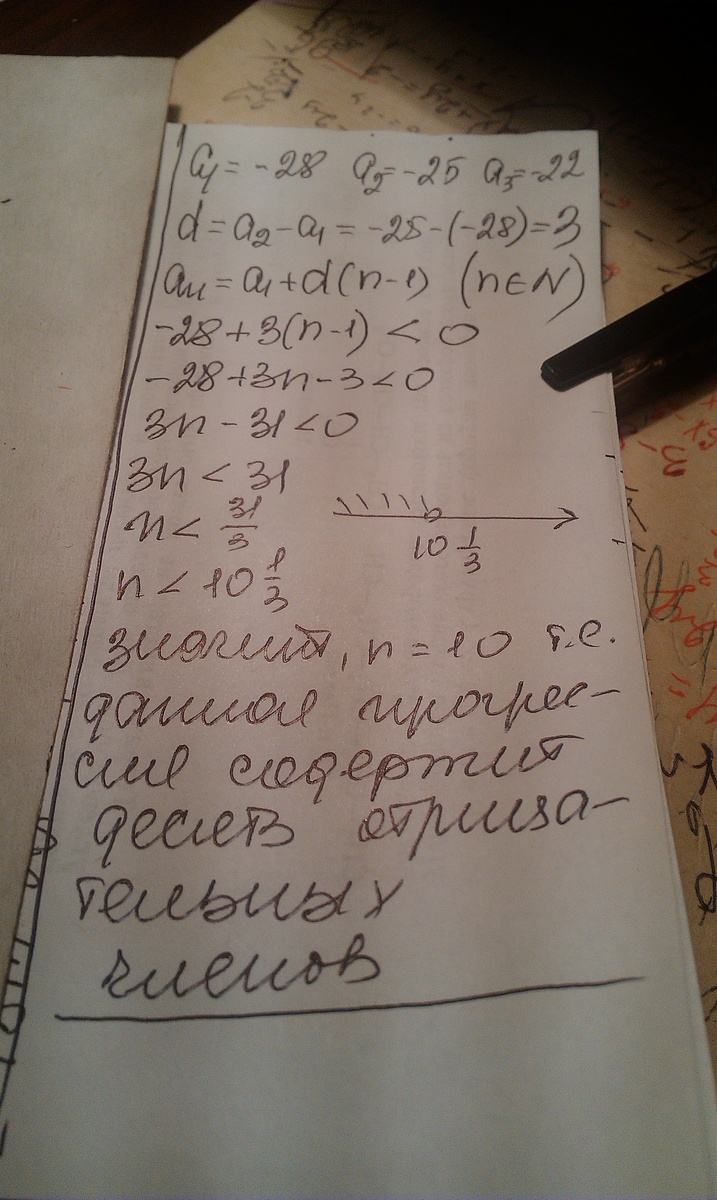 a₁ = -28 a₂ = -25 a₃ = -22
d = a₂ - a₁ = -25 - (-28) = 3
aₙ = a₁ + d(n-1) (n∈N)
-28 + 3(n-1) < 0
-28 + 3n - 3 < 0
3n - 31 < 0
3n < 31
n < 31/3
10 1/3
n < 10 1/3
значит, n = 10 т.е.
данная прогрес-
сия содержит
десять отрица-
тельных
членов